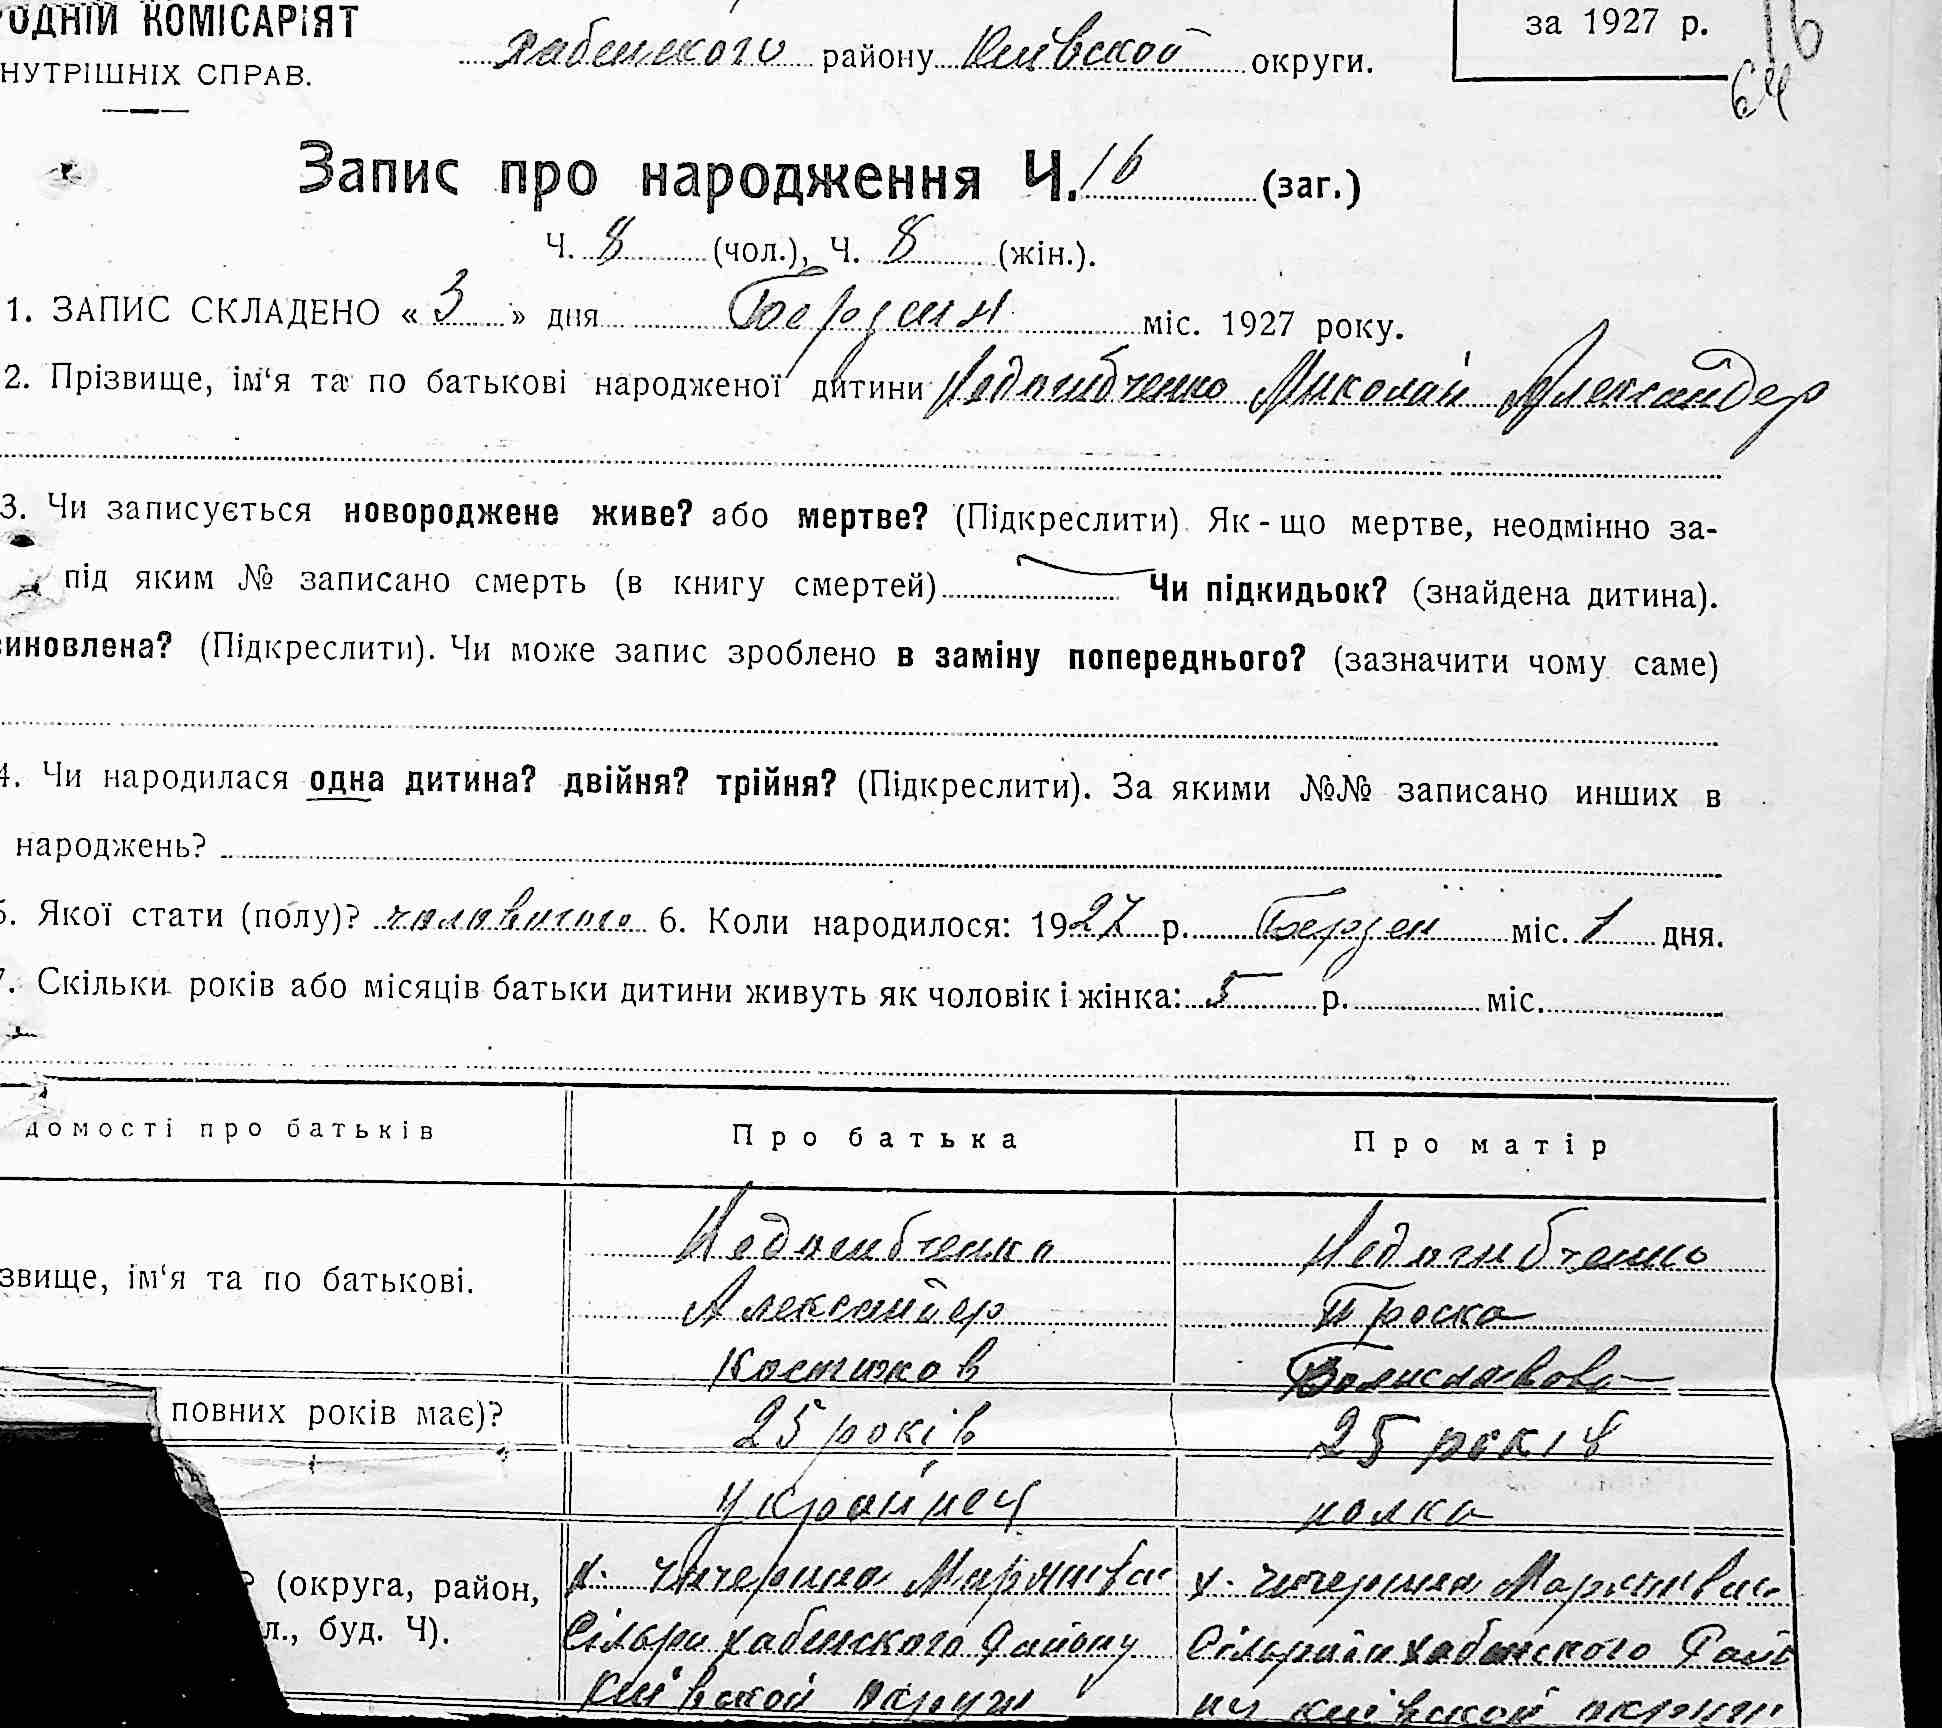 РОДНІЙ КОМІСАРІЯТ
НУТРІШНІХ СПРАВ.
Хабенского району Київской округи.
за 1927 р.
16
64
Запис про народження Ч. 16 (заг.)
Ч. 8 (чол.), Ч. 8 (жін.).
1. ЗАПИС СКЛАДЕНО « 3 » дня Березня міс. 1927 року.
2. Прізвище, ім‘я та по батькові народженої дитини Недогибченко Миколай Александер
3. Чи записується новороджене живе? або мертве? (Підкреслити). Як-що мертве, неодмінно за-
під яким № записано смерть (в книгу смертей) Чи підкидьок? (знайдена дитина).
иновлена? (Підкреслити). Чи може запис зроблено в заміну попереднього? (зазначити чому саме)
4. Чи народилася одна дитина? двійня? трійня? (Підкреслити). За якими №№ записано инших в
народжень?
5. Якої стати (полу)? чоловичого 6. Коли народилося: 1927 р. Берзен міс. 1 дня.
7. Скільки років або місяців батьки дитини живуть як чоловік і жінка: 5 р. міс.
домості про батьків Про батька Про матір
Недогибченко Недогибченко
звище, ім‘я та по батькові. Александер Проска
Костюков Болиславова
повних років має)? 25 років 25 років
украйнец полка
? (округа, район, х. Чичерина Маряниво х. Чичерина Маряниво
л., буд. Ч). Сільради Хабенского Району Сільради Хабенского Райо
Київской округи ну Київской округи